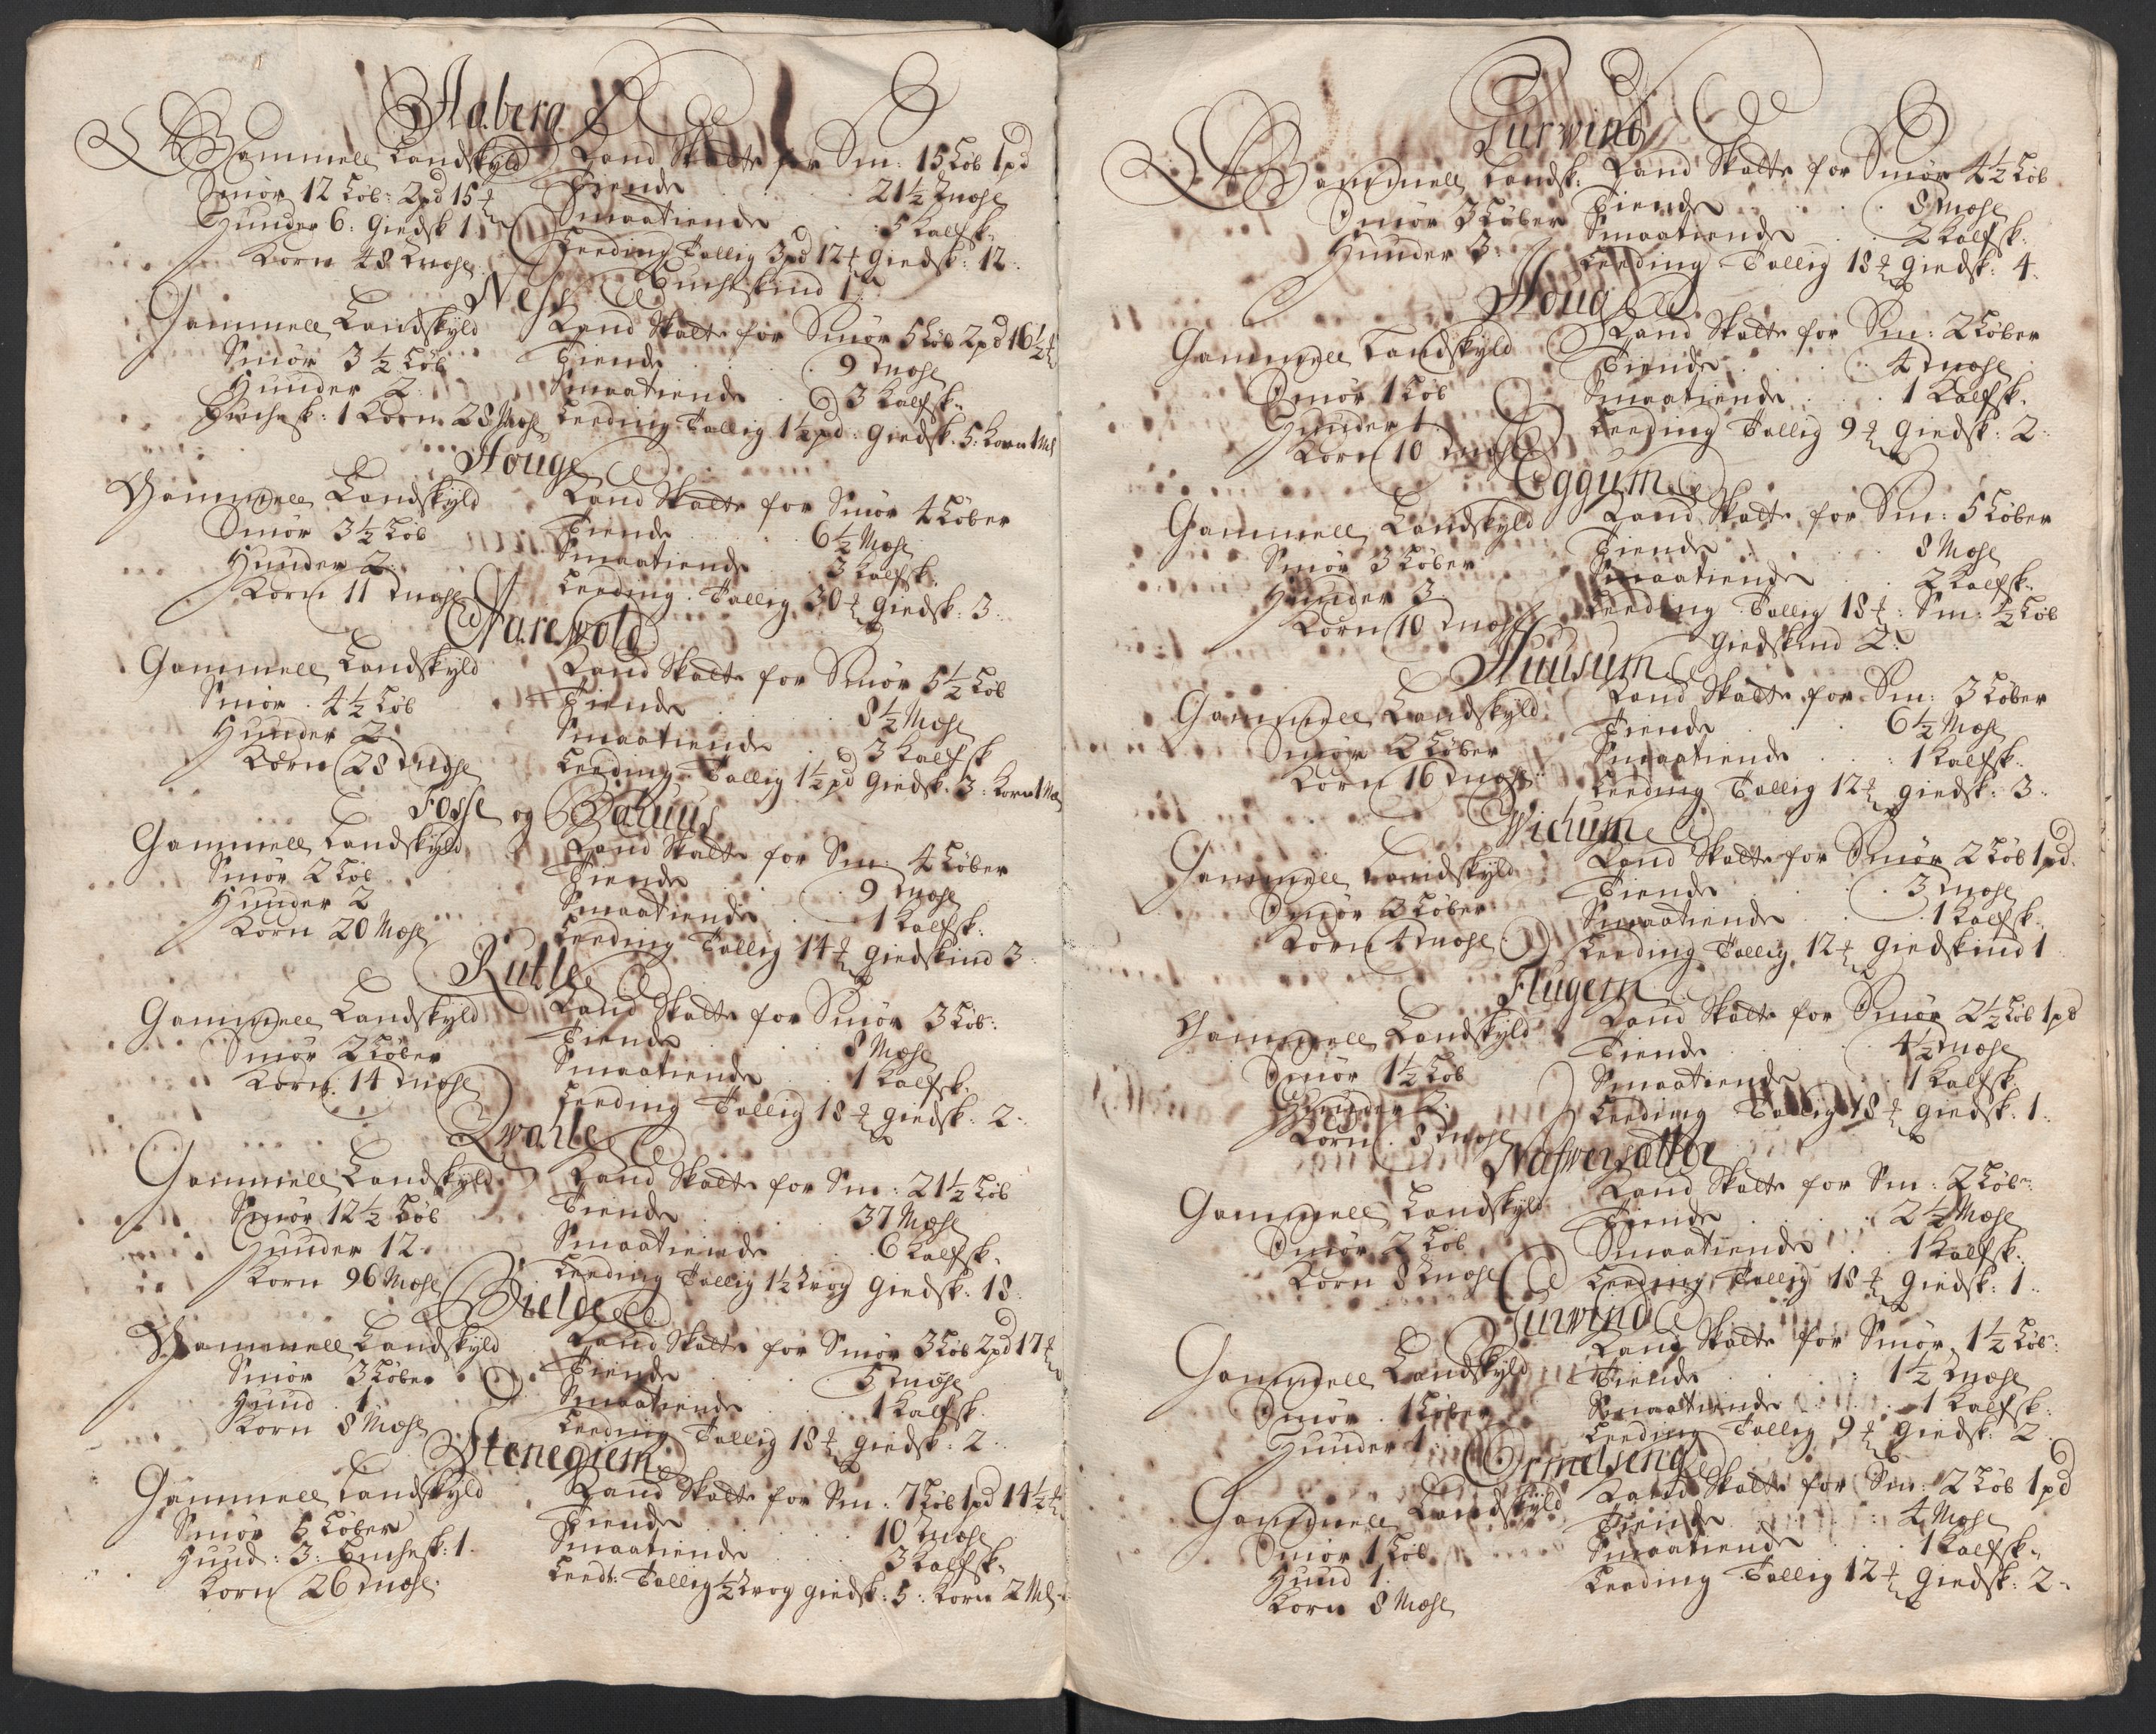 Aaberg
Gammell Landskyld
Smör 12 Löb: 2pd 15 ℔
Huuder 6: Giedsk 1
Korn 48 Mæhl
Land Skatt for Sm: 15 Löb 1pd
Tiende 21½ Mæhl
Smaatiende 5 Kalfsk:
Leeding Tallig 3pd 12 ℔ Giedsk: 12
Buchskind 1
Ness
Gammell Landskyld
Smör 3½ Löb
Huuder 2
Buchesk: 1 Korn 28 Mæhl
Land Skatt for Smör 5 Löb 2pd 16½ ℔
Tiende 9 Mæhl
Smaatiende 3 Kalfsk:
Leeding Tallig 1½pd: Giedsk: 5: Korn 1 Ml
Houge
Gammell Landskyld
Smör 3½ Löb
Huuder 2
Korn 11 Mæhl
Land Skatt for Smör 4 Löber
Tiende 6½ Mæhl
Smaatiende 3 Kalfsk:
Leeding Tallig 30 ℔ Giedsk: 3
Farewold
Gammell Landskyld
Smör 4½ Löb
Huuder 2
Korn 28 Mæhl
Land Skatt for Smör 5½ Löb
Tiende 8½ Mæhl
Smaatiende 3 Kalfsk
Leeding Tallig 1½pd Giedsk: 3: Korn 1 Ml
Fosse og
Gammell Landskyld
Smör 2 Löb
Huuder 2
Korn 20 Mæhl
Land Skatt for Sm: 4 Löber
Tiende 9 Mæhl
Smaatiende 1 Kalfsk:
Leeding Tallig 14 ℔ Giedskind 3
Rutle
Gammell Landskyld
Smör 2 Löber
Korn: 14 Mæhl
Land Skatt for Smör 3 Löb:
Tiende 8 Mæhl
Smaatiende 1 Kalfsk:
Leeding Tallig 18 ℔ Giedsk: 2
Qwahle
Gammell Landskyld
Smör 12½ Löb
Huuder 12
Korn 96 Mæhl
Land Skatt for Sm: 21½ Löb
Tiende 37 Mæhl
Smaatiende 6 Kalfsk:
Leeding Tallig 1½ Wog Giedsk: 18
Bielde
Gammell Landskyld
Smör 3 Löber
Huud 1
Korn 8 Mæhl
Land Skatt for Smör 3 Löb 2pd 17 ℔
Tiende 5 Mæhl
Smaatiende 1 Kalfsk
Leeding Tallig 18 ℔ Giedsk: 2
Stenegiem
Gammell Landskyld
Smör 5 Löber
Huud: 3: Buchesk: 1
Korn 26 Mæhl
Land Skatt for Sm: 7 Löb 1pd 14½ ℔
Tiende 10 Mæhl
Smaatiende 3 Kalfsk:
Leed: Tallig ½ Wog Giedsk: 5: Korn 2 Ml
Turwind
Gammell Landsk:
Smör 3 Löber
Huuder 3
Land Skatt for Smör 4½ Löb
Tiende 8 Mæhl
Smaatiende 2 Kalfsk:
Leeding Tallig 18 ℔ Giedsk: 4
Houg
Gammell Landskyld
Smör 1 Löb
Huuder 1
Korn 10 Mæhl
Land Skatt for Sm: 2 Löber
Tiende 4 Mæhl
Smaatiende 1 Kalfsk.
Leeding Tallig 9 ℔ Giedsk: 2
Eggum
Gammell Landskyld
Smör 3 Löber
Huuder 3
Korn 10 Mæhl
Land Skatt for Sm: 5 Löber
Tiende 8 Mæhl
Smaatiende 2 Kalfsk:
Leeding Tallig 18 ℔: Sm: ½ Löb
Giedskind 2
Huusum
Gammell Landskyld
Smör 2 Löber
Korn 16 Mæhl
Land Skatt for Sm: 3 Löber
Tiende 6½ Mæhl
Smaatiende 1 Kalfsk.
Leeding Tallig 12 ℔ Giedsk: 3
Wichum
Gammell Landskyld
Smör 3 Löber
Korn 4 Mæhl
Land Skatt for Smör 2 Löb 1pd.
Tiende 3 Mæhl
Smaatiende 1 Kalfsk:
Leeding Tallig 12 ℔ Giedskind 1
Flugem
Gammell Landskyld
Smör 1½ Löb
Huuder 2
Korn 8 Mæhl
Land Skatt for Smör 2½ Löb 1pd
Tiende 4½ Mæhl
Smaatiende 1 Kalfsk.
Leeding Tallig 18 ℔ Giedsk. 1
Nafwersætter
Gammell Landskyld
Smör 2 Löb
Korn 8 Mæhl
Land Skatt for Sm: 2 Löb:
Tiende 2½ Mæhl
Smaatiende 1 Kalfsk:
Leeding Tallig 18 ℔ Giedsk: 1
Turwind
Gammell Landskyld
Smör 1 Löber
Huuder 1
Land Skatt for Smör 1½ Löb:
Tiende 1½ Mæhl
Smaatiende 1 Kalfsk:
Leeding Tallig 9 ℔ Giedsk: 2
Ormelseng
Gammell Landskyld
Smör 1 Löb
Huud 1
Korn 8 Mæhl
Land Skatt for Sm: 2 Löb 1pd
Tiende 4 Mæhl
Smaatiende 1 Kalfsk:
Leeding Tallig 12 ℔ Giedsk: 2